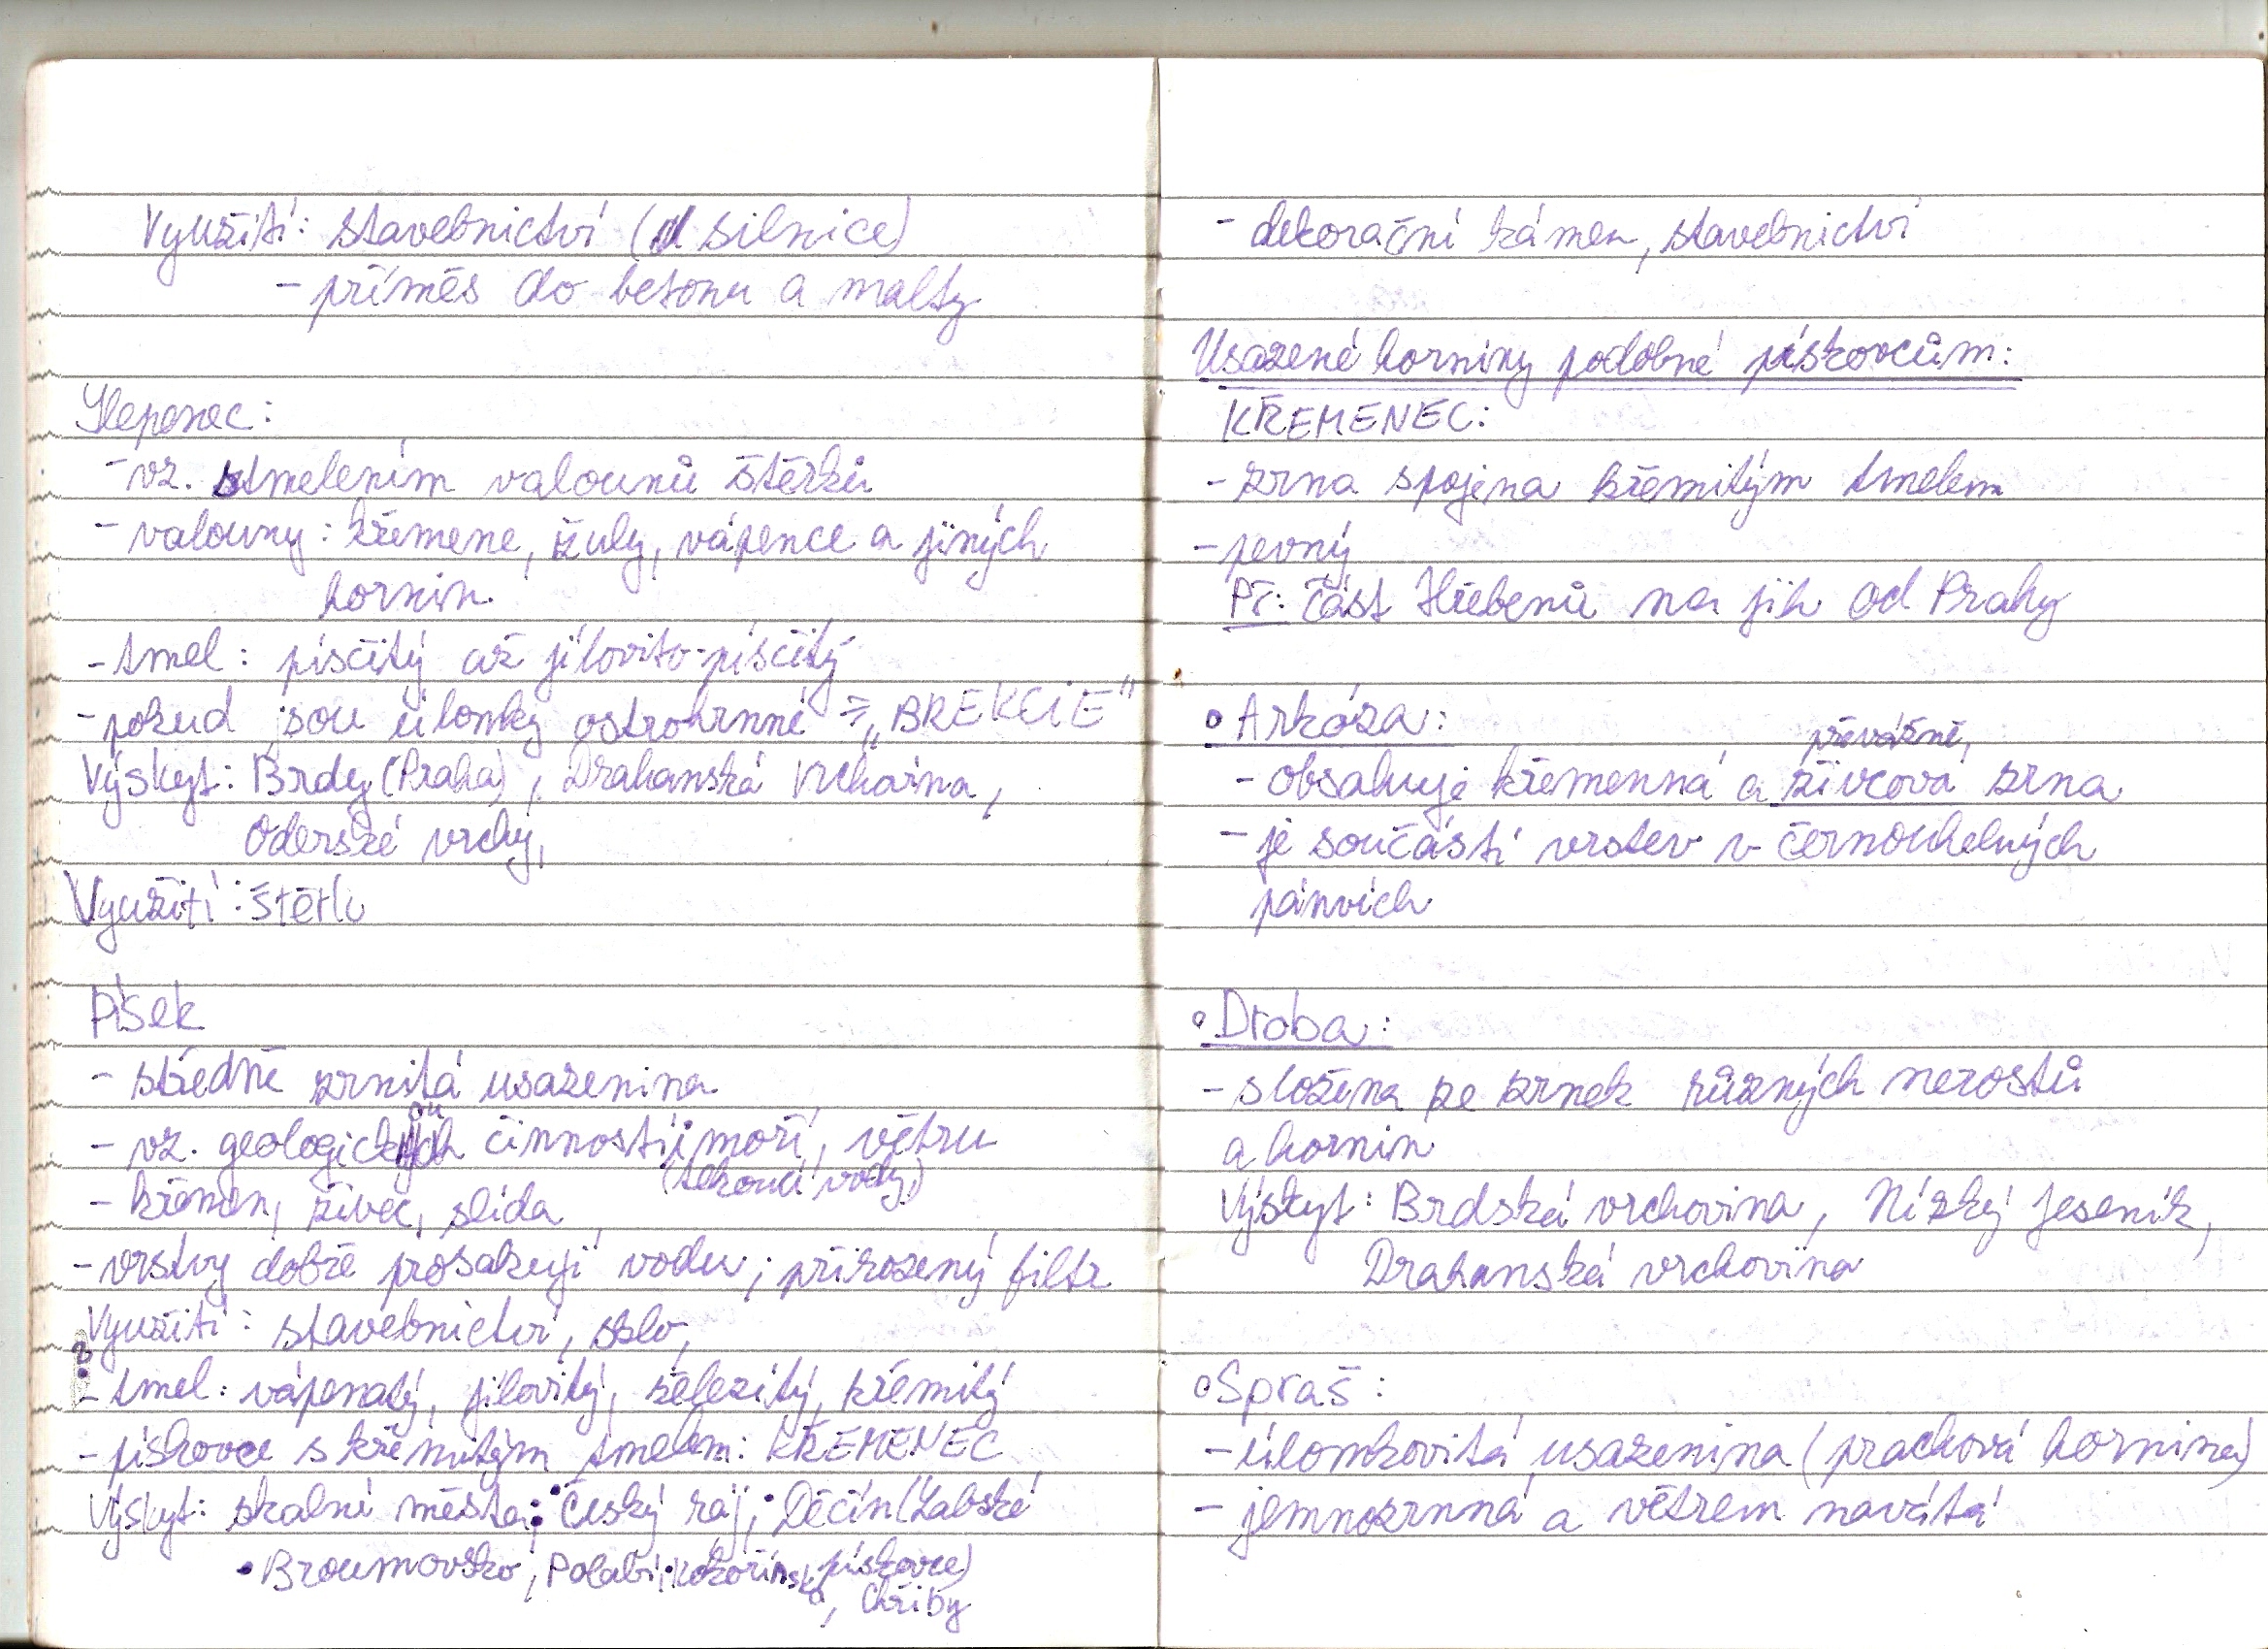 Využití: stavebnictví (silnice)
- příměs do betonu a malty
Slepenec:
- vz. stmelením valounů štěrků
- valouny: křemene, žuly, vápence a jiných
hornin
- tmel: písčitý až jílovito-písčitý
- pokud jsou úlomky ostrohrnné => „BREKCIE"
Výskyt: Brdy (Praha), Drahanská vrchovina,
Oderské vrchy,
Využití: štěrk
Písek
- středně zrnitá usazenina
- vz. geologickou činností moří, větru
(tekoucí vody)
- křemen, živec, slída
- vrstvy dobře prosakují vodu; přirozený filtr
Využití: stavebnictví, sklo,
- tmel: vápenatý, jílovitý, železitý, křemitý
- pískovce s křemitým tmelem: KŘEMENEC
Výskyt: skalní města: • Český ráj, • Děčín (Labské
pískovce)
• Broumovsko, Polabí, • Kokořínska, Chřiby
- dekorační kámen, stavebnictví
Usazené horniny podobné pískovcům:
KŘEMENEC:
- zrna spojena křemitým tmelem
- pevný
Př: část Hřebenů na jih od Prahy
• Arkóza:
převážně,
- obsahuje křemenná a živcová zrna
- je součástí vrstev v černouhelných
pánvích
• Droba:
- složena ze zrnek různých nerostů
a hornin
Výskyt: Brdská vrchovina, Nízký Jeseník,
Drahanská vrchovina
• Spraš:
- úlomkovitá usazenina (prachová hornina)
- jemnozrnná a větrem navátá